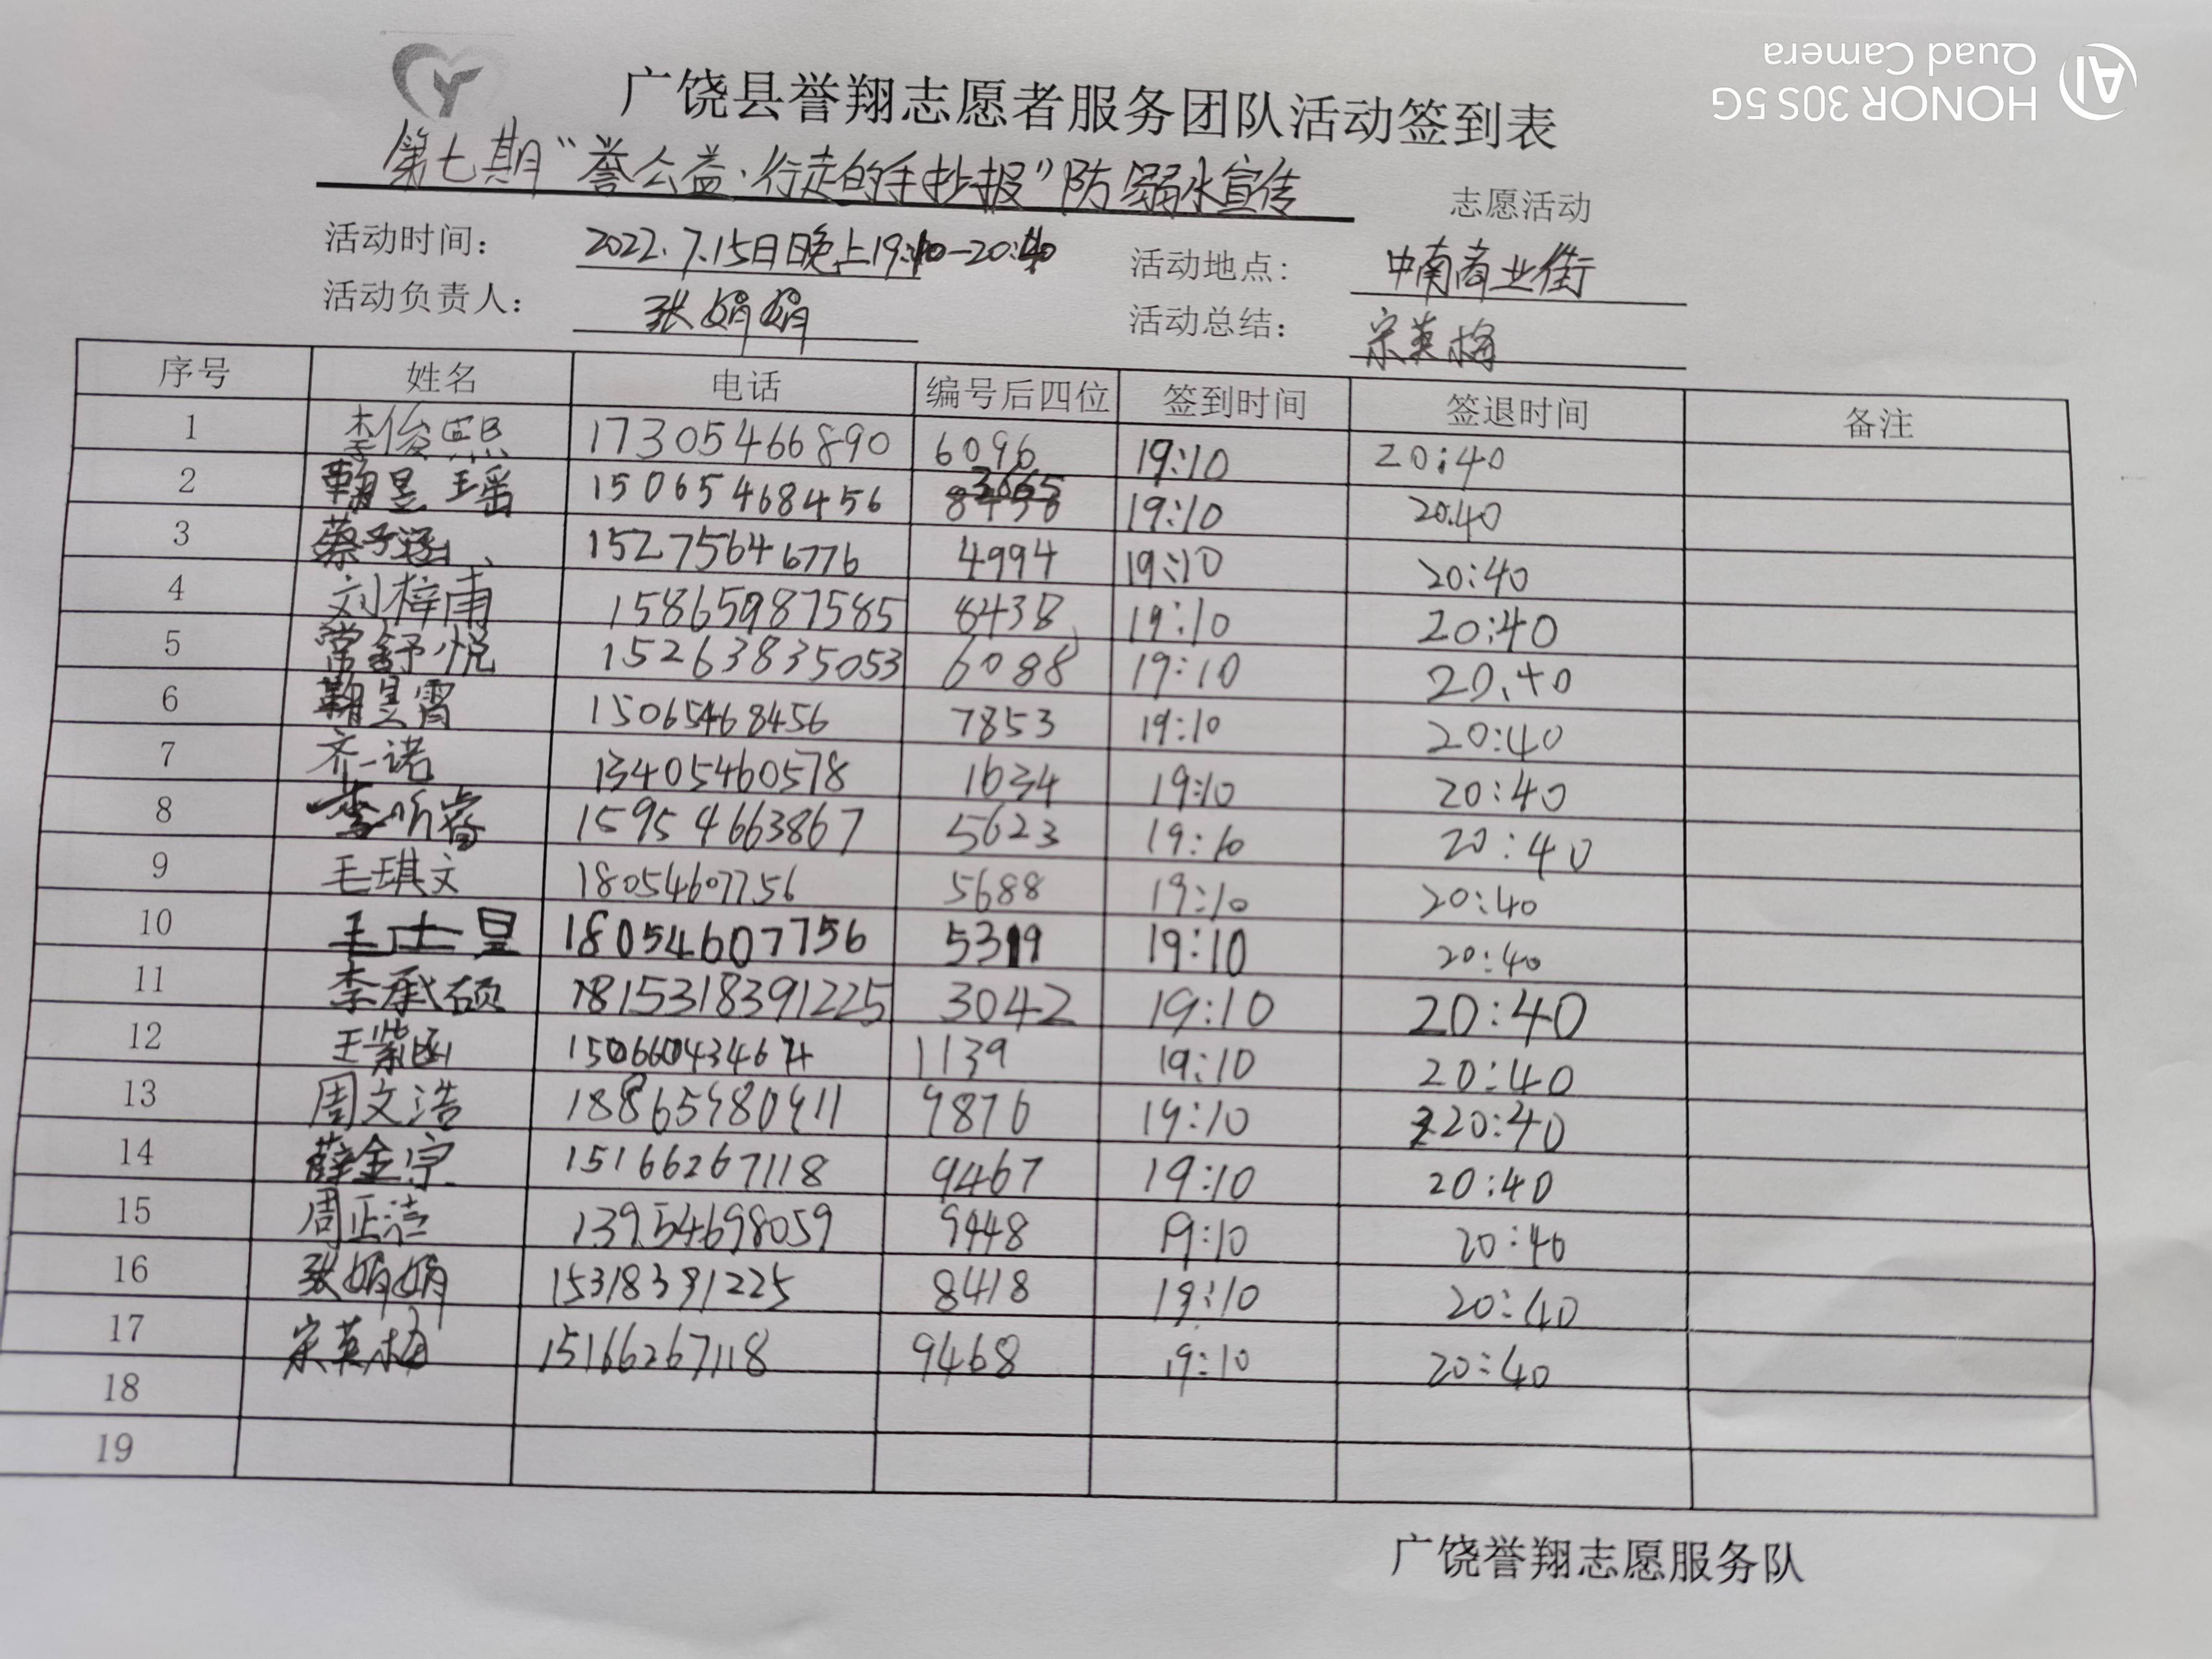 HONOR 30S 5G
Quad Camera
AI
广饶县誉翔志愿者服务团队活动签到表
第七期“誉公益·行走的手抄报”防溺水宣传 志愿活动
活动时间： 2022.7.15日晚上19:10-20:40 活动地点： 中南商业街
活动负责人： 张娟娟 活动总结： 宋英梅
序号 姓名 电话 编号后四位 签到时间 签退时间 备注
1 李俊熙 17305466890 6096 19:10 20:40
2 15065468456 3665 19:10 20:40
3 蔡子涵 15275646776 4994 19:10 20:40
4 刘梓甫 15865987585 8438 19:10 20:40
5 常舒悦 15263835053 6088 19:10 20:40
6 15065468456 7853 19:10 20:40
7 齐一诺 13405460578 1634 19:10 20:40
8 李昕睿 15954663867 5623 19:10 20:40
9 毛琪文 18054607756 5688 19:10 20:40
10 18054607756 5319 19:10 20:40
11 李承硕 15318391225 3042 19:10 20:40
12 王紫函 1139 19:10 20:40
13 周文浩 18865980911 9876 19:10 20:40
14 薛金宗 15166267118 9467 19:10 20:40
15 周正浩 13954698059 9448 19:10 20:40
16 张娟娟 15318391225 8418 19:10 20:40
17 宋英梅 15166267118 9468 19:10 20:40
18
19
广饶誉翔志愿服务队